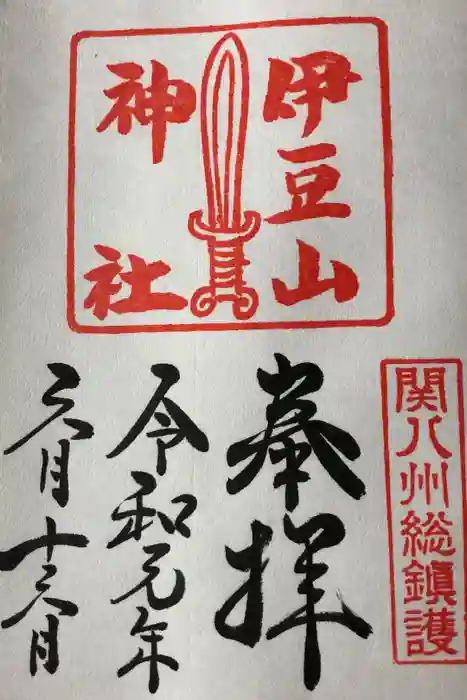 伊豆山
神社
関八州総鎭護
奉拝
令和元年
六月十六日